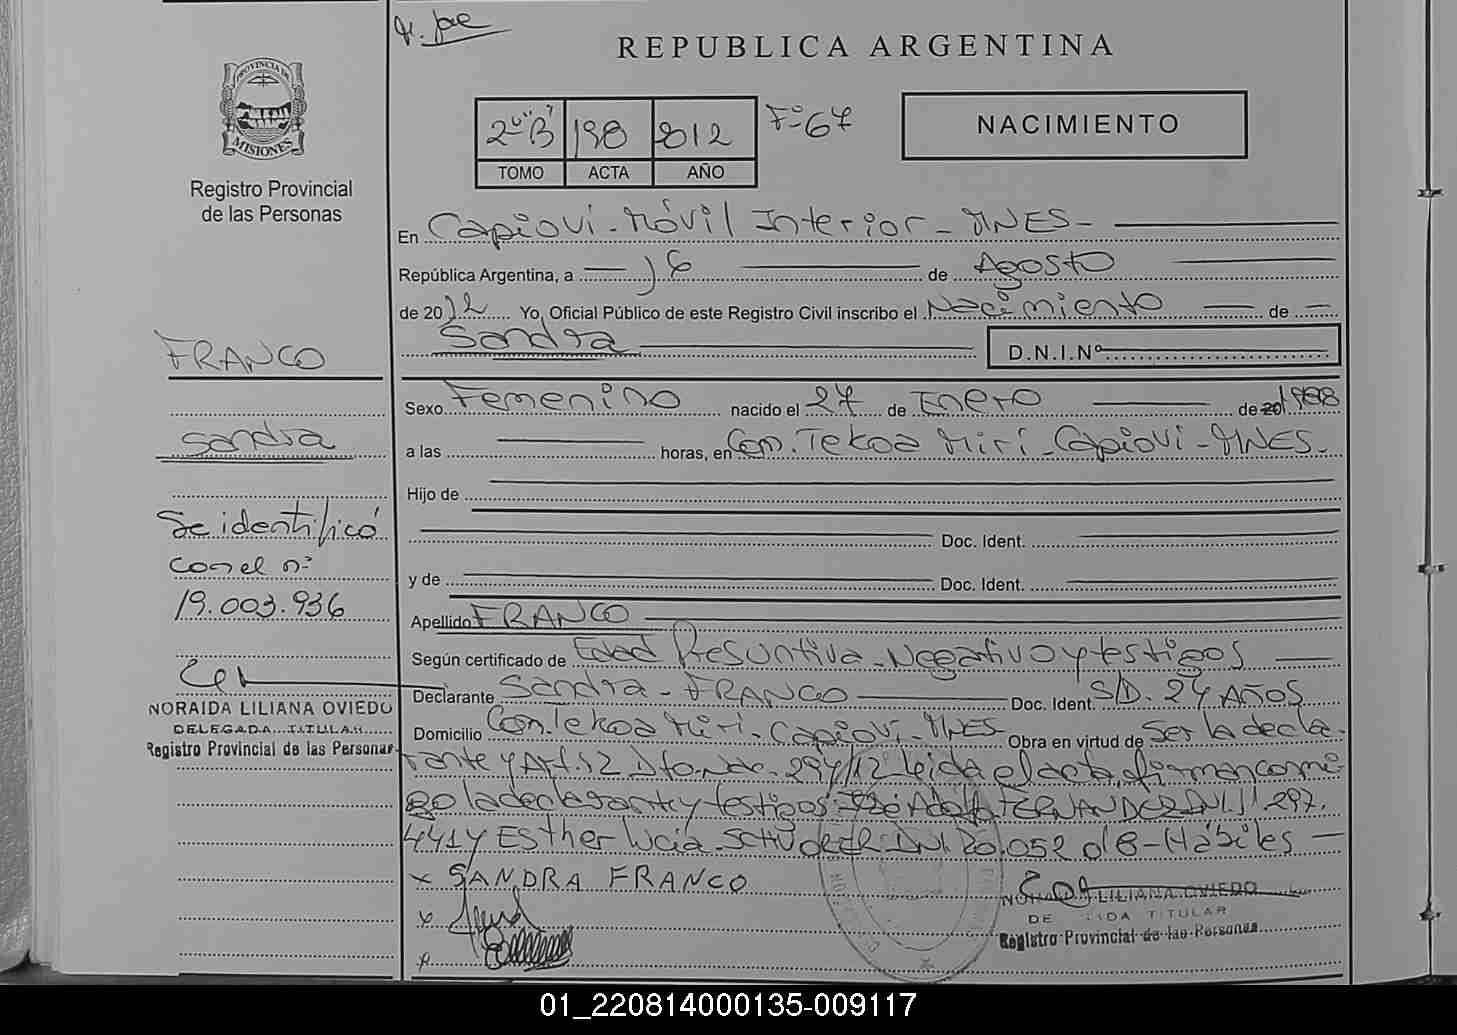 REPUBLICA ARGENTINA
PROVINCIA DE
MISIONES
Registro Provincial
de las Personas
2º "B" 198 2012 Fº 67
TOMO ACTA AÑO
NACIMIENTO
En Capiovi - Móvil Interior - MNES -
República Argentina, a 16 de Agosto
de 2012 Yo, Oficial Público de este Registro Civil inscribo el Nacimiento de
Sandra D.N.I.Nº
Sexo Femenino nacido el 27 de Enero de 20 1988
a las horas, en Com. Tekoa Miri - Capiovi - MNES.
Hijo de
Doc. Ident.
y de Doc. Ident.
Apellido FRANCO
Según certificado de Edad Presuntiva - Negativo y testigos
Declarante Sandra - FRANCO Doc. Ident. S/D. 24 AÑOS
Domicilio Com. Tekoa Miri - Capiovi - MNES Obra en virtud de Ser la decla-
rante y Art. 12 Dto. Nac. 294/12 leida el acta, firman conmi-
go la declarante y testigos: José Adolfo FERNANDEZ DNI. 297.
441 y Esther Lucia SCHVORER DNI. 20.052.018 - Hábiles
x SANDRA FRANCO
x
x
NORAIDA LILIANA OVIEDO
DELEGADA TITULAR
Registro Provincial de las Personas
FRANCO
Sandra
Se identificó
con el nº
19.003.936
NORAIDA LILIANA OVIEDO
DELEGADA TITULAR
Registro Provincial de las Personas
01_220814000135-009117